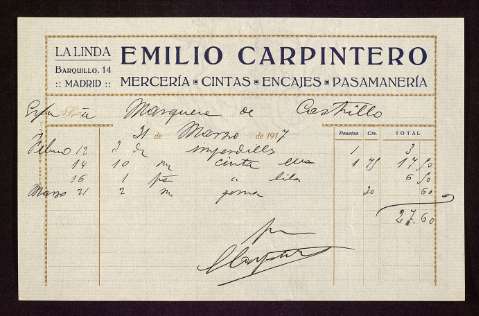 LA LINDA
BARQUILLO, 14
:: MADRID ::
EMILIO CARPINTERO
MERCERÍA * CINTAS * ENCAJES * PASAMANERÍA
Marquesa de Castrillo
31 de Marzo de 1917
Pesetas Cts. TOTAL
Febrero 12 3 de 1 3
14 10 m cinta 1 75 17,50
16 1 pza " lila 6 50
Marzo 21 2 m goma 30 60
27.60